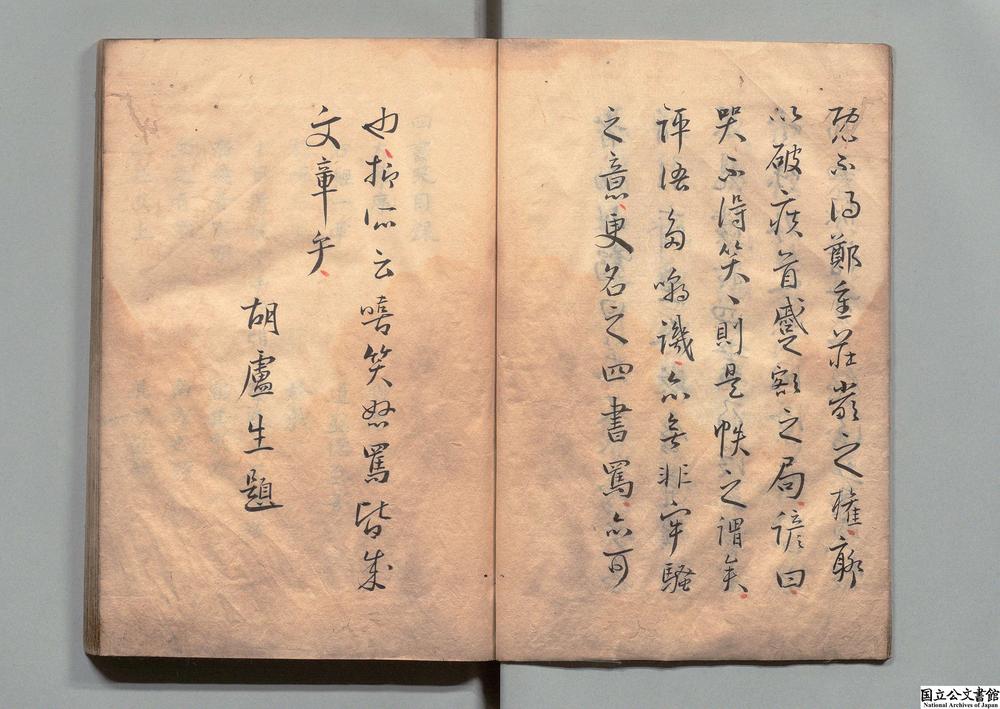 不得鄭重莊嚴之權、聊
以破疾首蹙額之局、諺曰、
哭不得笑、〻則是帙之謂矣、
評語多嘲譏、亦無非牢騷
之意、更名之四書罵、亦可
也、抑所云嘻笑怒罵皆成
文章乎、
胡盧生題
国立公文書館
National Archives of Japan